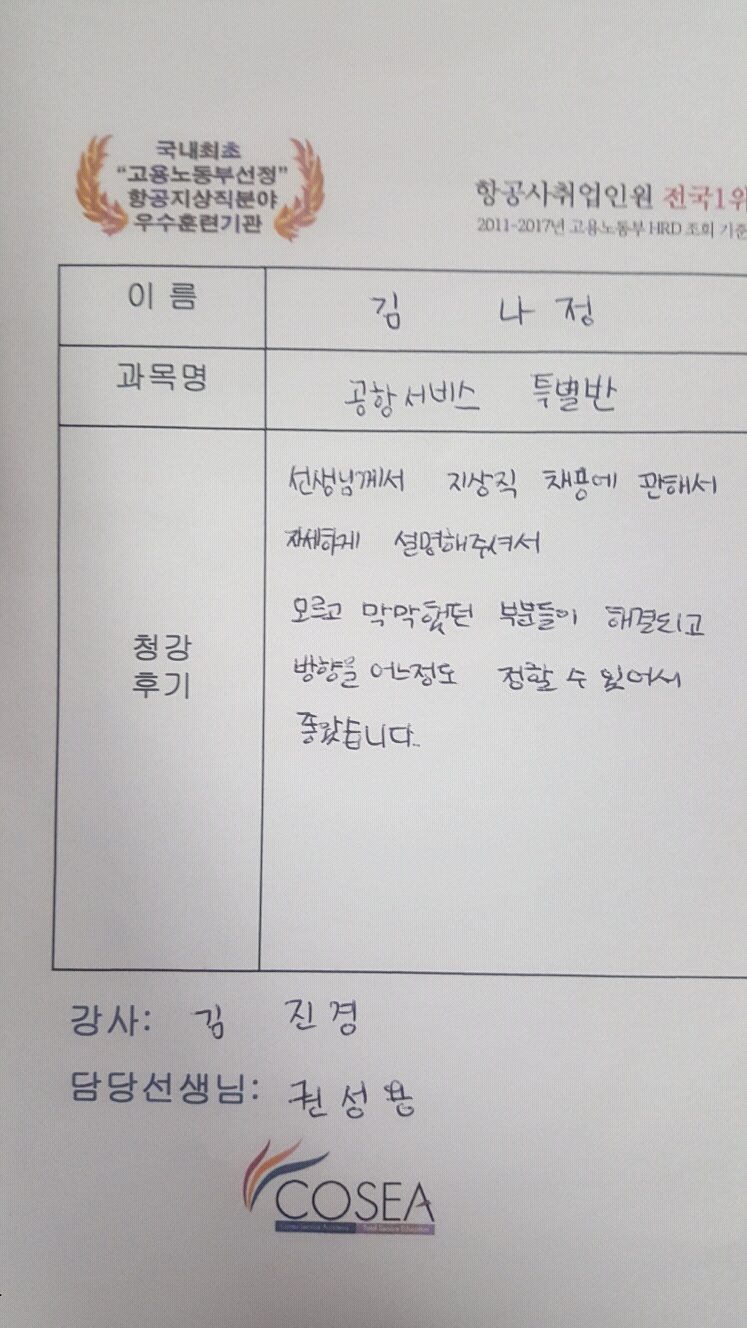 국내최초
"고용노동부선정"
항공지상직분야
우수훈련기관
항공사취업인원 전국1위
2011-2017년 고용노동부 HRD 조회 기준
이 름
김 나 정
과목명
공항서비스 특별반
청강
후기
선생님께서 지상직 채용에 관해서
자세하게 설명해주셔서
모르고 막막했던 부분들이 해결되고
방향을 어느정도 정할 수 있어서
좋았습니다..
강사: 김 진경
담당선생님: 권성용
COSEA